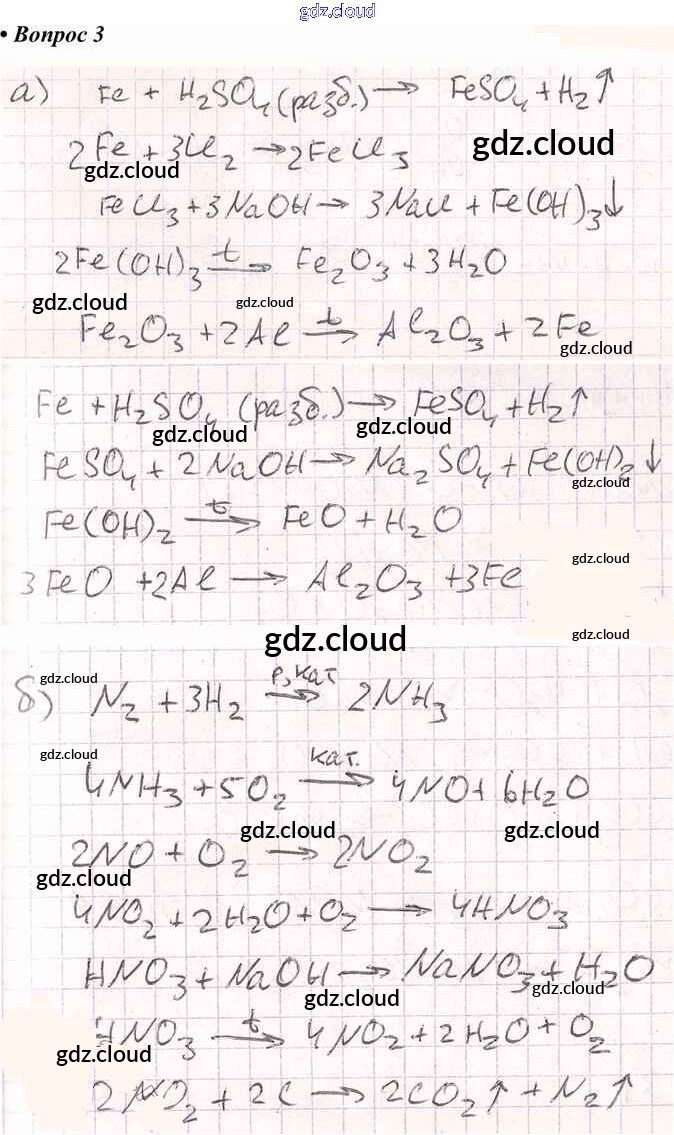 gdz.cloud
• Вопрос 3
а) Fe + H₂SO₄ (разб.) → FeSO₄ + H₂↑
gdz.cloud
2Fe + 3Cl₂ → 2FeCl₃
gdz.cloud
FeCl₃ + 3NaOH → 3NaCl + Fe(OH)₃↓
2Fe(OH)₃ t→ Fe₂O₃ + 3H₂O
gdz.cloud gdz.cloud
Fe₂O₃ + 2Al t→ Al₂O₃ + 2Fe
gdz.cloud
Fe + H₂SO₄ (разб.) → FeSO₄ + H₂↑
gdz.cloud gdz.cloud
FeSO₄ + 2NaOH → Na₂SO₄ + Fe(OH)₂↓
gdz.cloud
Fe(OH)₂ t→ FeO + H₂O
gdz.cloud
3FeO + 2Al → Al₂O₃ + 3Fe
gdz.cloud
gdz.cloud
gdz.cloud
б) N₂ + 3H₂ p, кат→ 2NH₃
gdz.cloud
4NH₃ + 5O₂ кат.→ 4NO + 6H₂O
gdz.cloud gdz.cloud
2NO + O₂ → 2NO₂
gdz.cloud
4NO₂ + 2H₂O + O₂ → 4HNO₃
HNO₃ + NaOH → NaNO₃ + H₂O
gdz.cloud
gdz.cloud
4HNO₃ t→ 4NO₂ + 2H₂O + O₂
gdz.cloud
2NO₂ + 2C → 2CO₂↑ + N₂↑